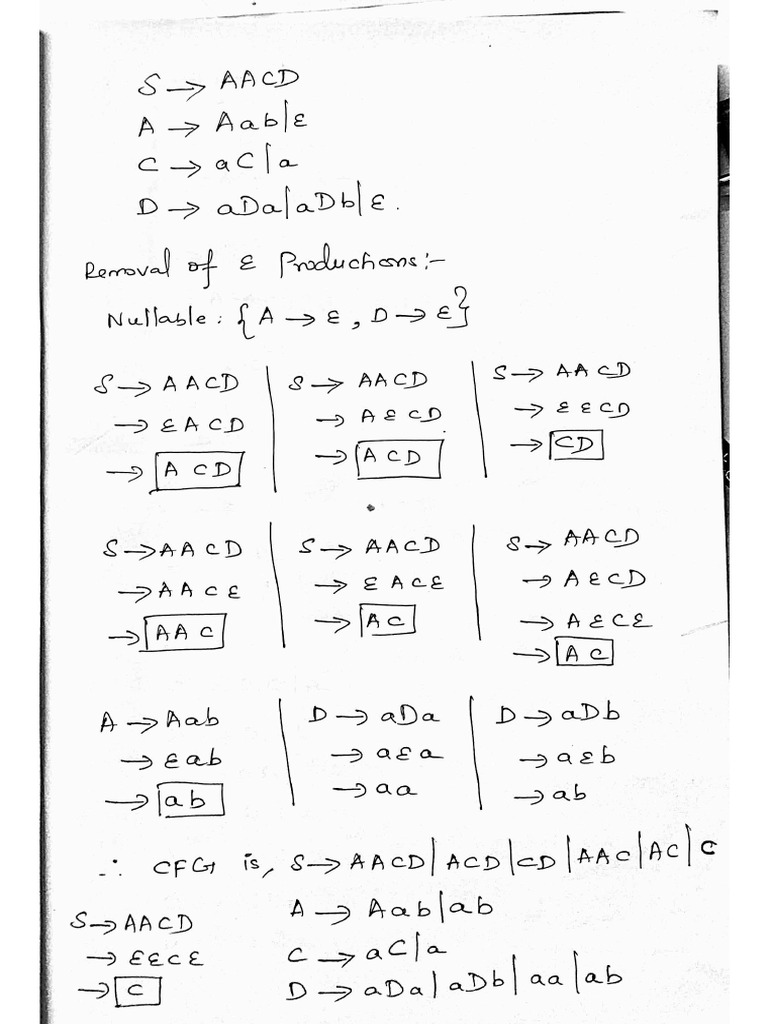 S → AACD
A → Aab|ε
C → aC|a
D → aDa|aDb|ε.
Removal of ε Productions:-
Nullable: {A → ε, D → ε}
S → AACD
→ εACD
→ ACD
S → AACD
→ AεCD
→ ACD
S → AACD
→ εεCD
→ CD
S → AACD
→ AACε
→ AAC
S → AACD
→ εACε
→ AC
S → AACD
→ AεCD
→ AεCε
→ AC
A → Aab
→ εab
→ ab
D → aDa
→ aεa
→ aa
D → aDb
→ aεb
→ ab
∴ CFG is, S → AACD|ACD|CD|AAC|AC|C
A → Aab|ab
C → aC|a
D → aDa|aDb|aa|ab
S → AACD
→ εεCε
→ C